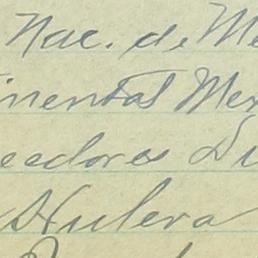 Nac. de Me
inental Mex
eedores Di
Hulera